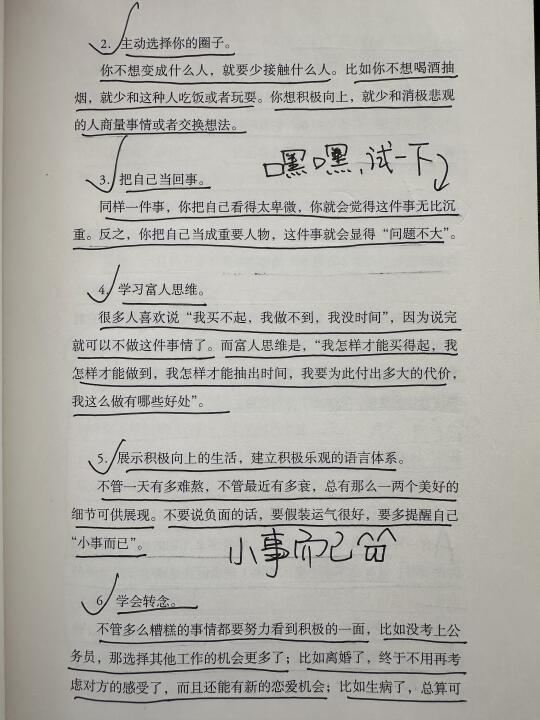 2. 主动选择你的圈子。
你不想变成什么人，就要少接触什么人。比如你不想喝酒抽
烟，就少和这种人吃饭或者玩耍。你想积极向上，就少和消极悲观
的人商量事情或者交换想法。
嘿嘿，试一下
3. 把自己当回事。
同样一件事，你把自己看得太卑微，你就会觉得这件事无比沉
重。反之，你把自己当成重要人物，这件事就会显得“问题不大”。
4. 学习富人思维。
很多人喜欢说“我买不起，我做不到，我没时间”，因为说完
就可以不做这件事情了。而富人思维是，“我怎样才能买得起，我
怎样才能做到，我怎样才能抽出时间，我要为此付出多大的代价，
我这么做有哪些好处”。
5. 展示积极向上的生活，建立积极乐观的语言体系。
不管一天有多难熬，不管最近有多衰，总有那么一两个美好的
细节可供展现。不要说负面的话，要假装运气很好，要多提醒自己
“小事而已”。
小事而已
6 学会转念。
不管多么糟糕的事情都要努力看到积极的一面，比如没考上公
务员，那选择其他工作的机会更多了；比如离婚了，终于不用再考
虑对方的感受了，而且还能有新的恋爱机会；比如生病了，总算可